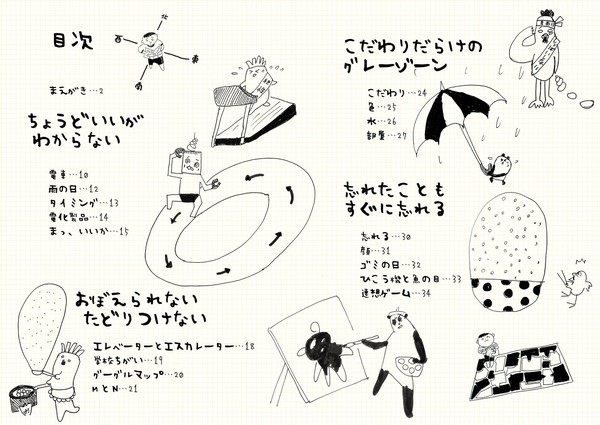 目次
北
西
東
南
まえがき…2
ちょうどいいが
わからない
電車…10
雨の日…12
タイミング…13
電化製品…14
まっ、いいか…15
おぼえられない
たどりつけない
エレベーターとエスカレーター…18
学校ちがい…19
グーグルマップ…20
MとN…21
こだわりだらけの
グレーゾーン
こだわり…24
色…25
水…26
部屋…27
忘れたことも
すぐに忘れる
忘れる…30
顔…31
ゴミの日…32
ひこう機と魚の日…33
連想ゲーム…34